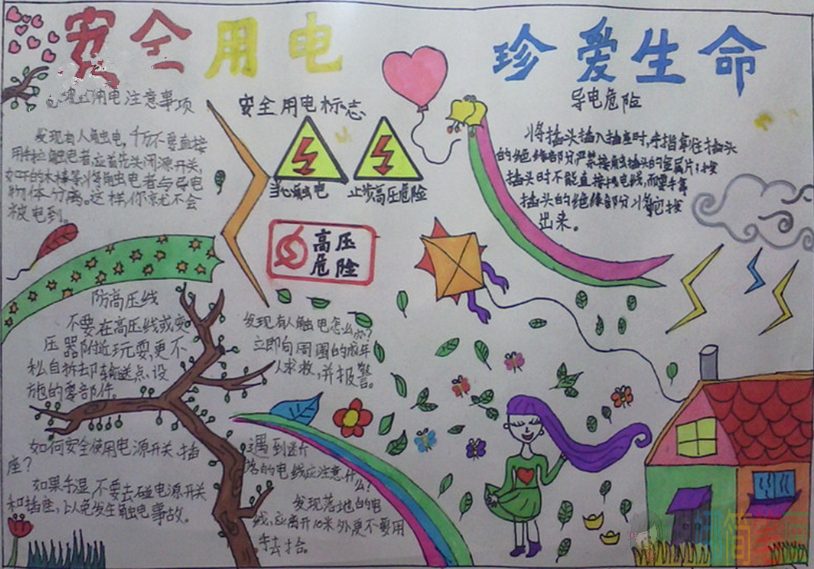 安全用电
珍爱生命
用电注意事项
发现有人触电,千万不要直接
用手拉触电者,应首先关闭源开关,
如干的木棒等,将触电者与导电
物体分离。这样,你就不会
被电到。
安全用电标志
当心触电
止步高压危险
高压
危险
导电危险
将插头插入插座时,手指拿住插头
的绝缘部分严禁接触插头的金属片;拔
插头时不能直接拽电线,而要手拿
插头的绝缘部分将它拔
出来。
防高压线
不要在高压线或变
压器附近玩耍,更不
私自拆卸输送点、设
施的零部件。
发现有人触电怎么办?
立即向周围的成年
人求救,并报警。
如何安全使用电源开关、插
座?
如果手湿,不要去碰电源开关
和插座,以免发生触电事故。
遇到断
落的电线应注意什
么!
发现落地的电
线,应离开10米外更不要用
手去拾。